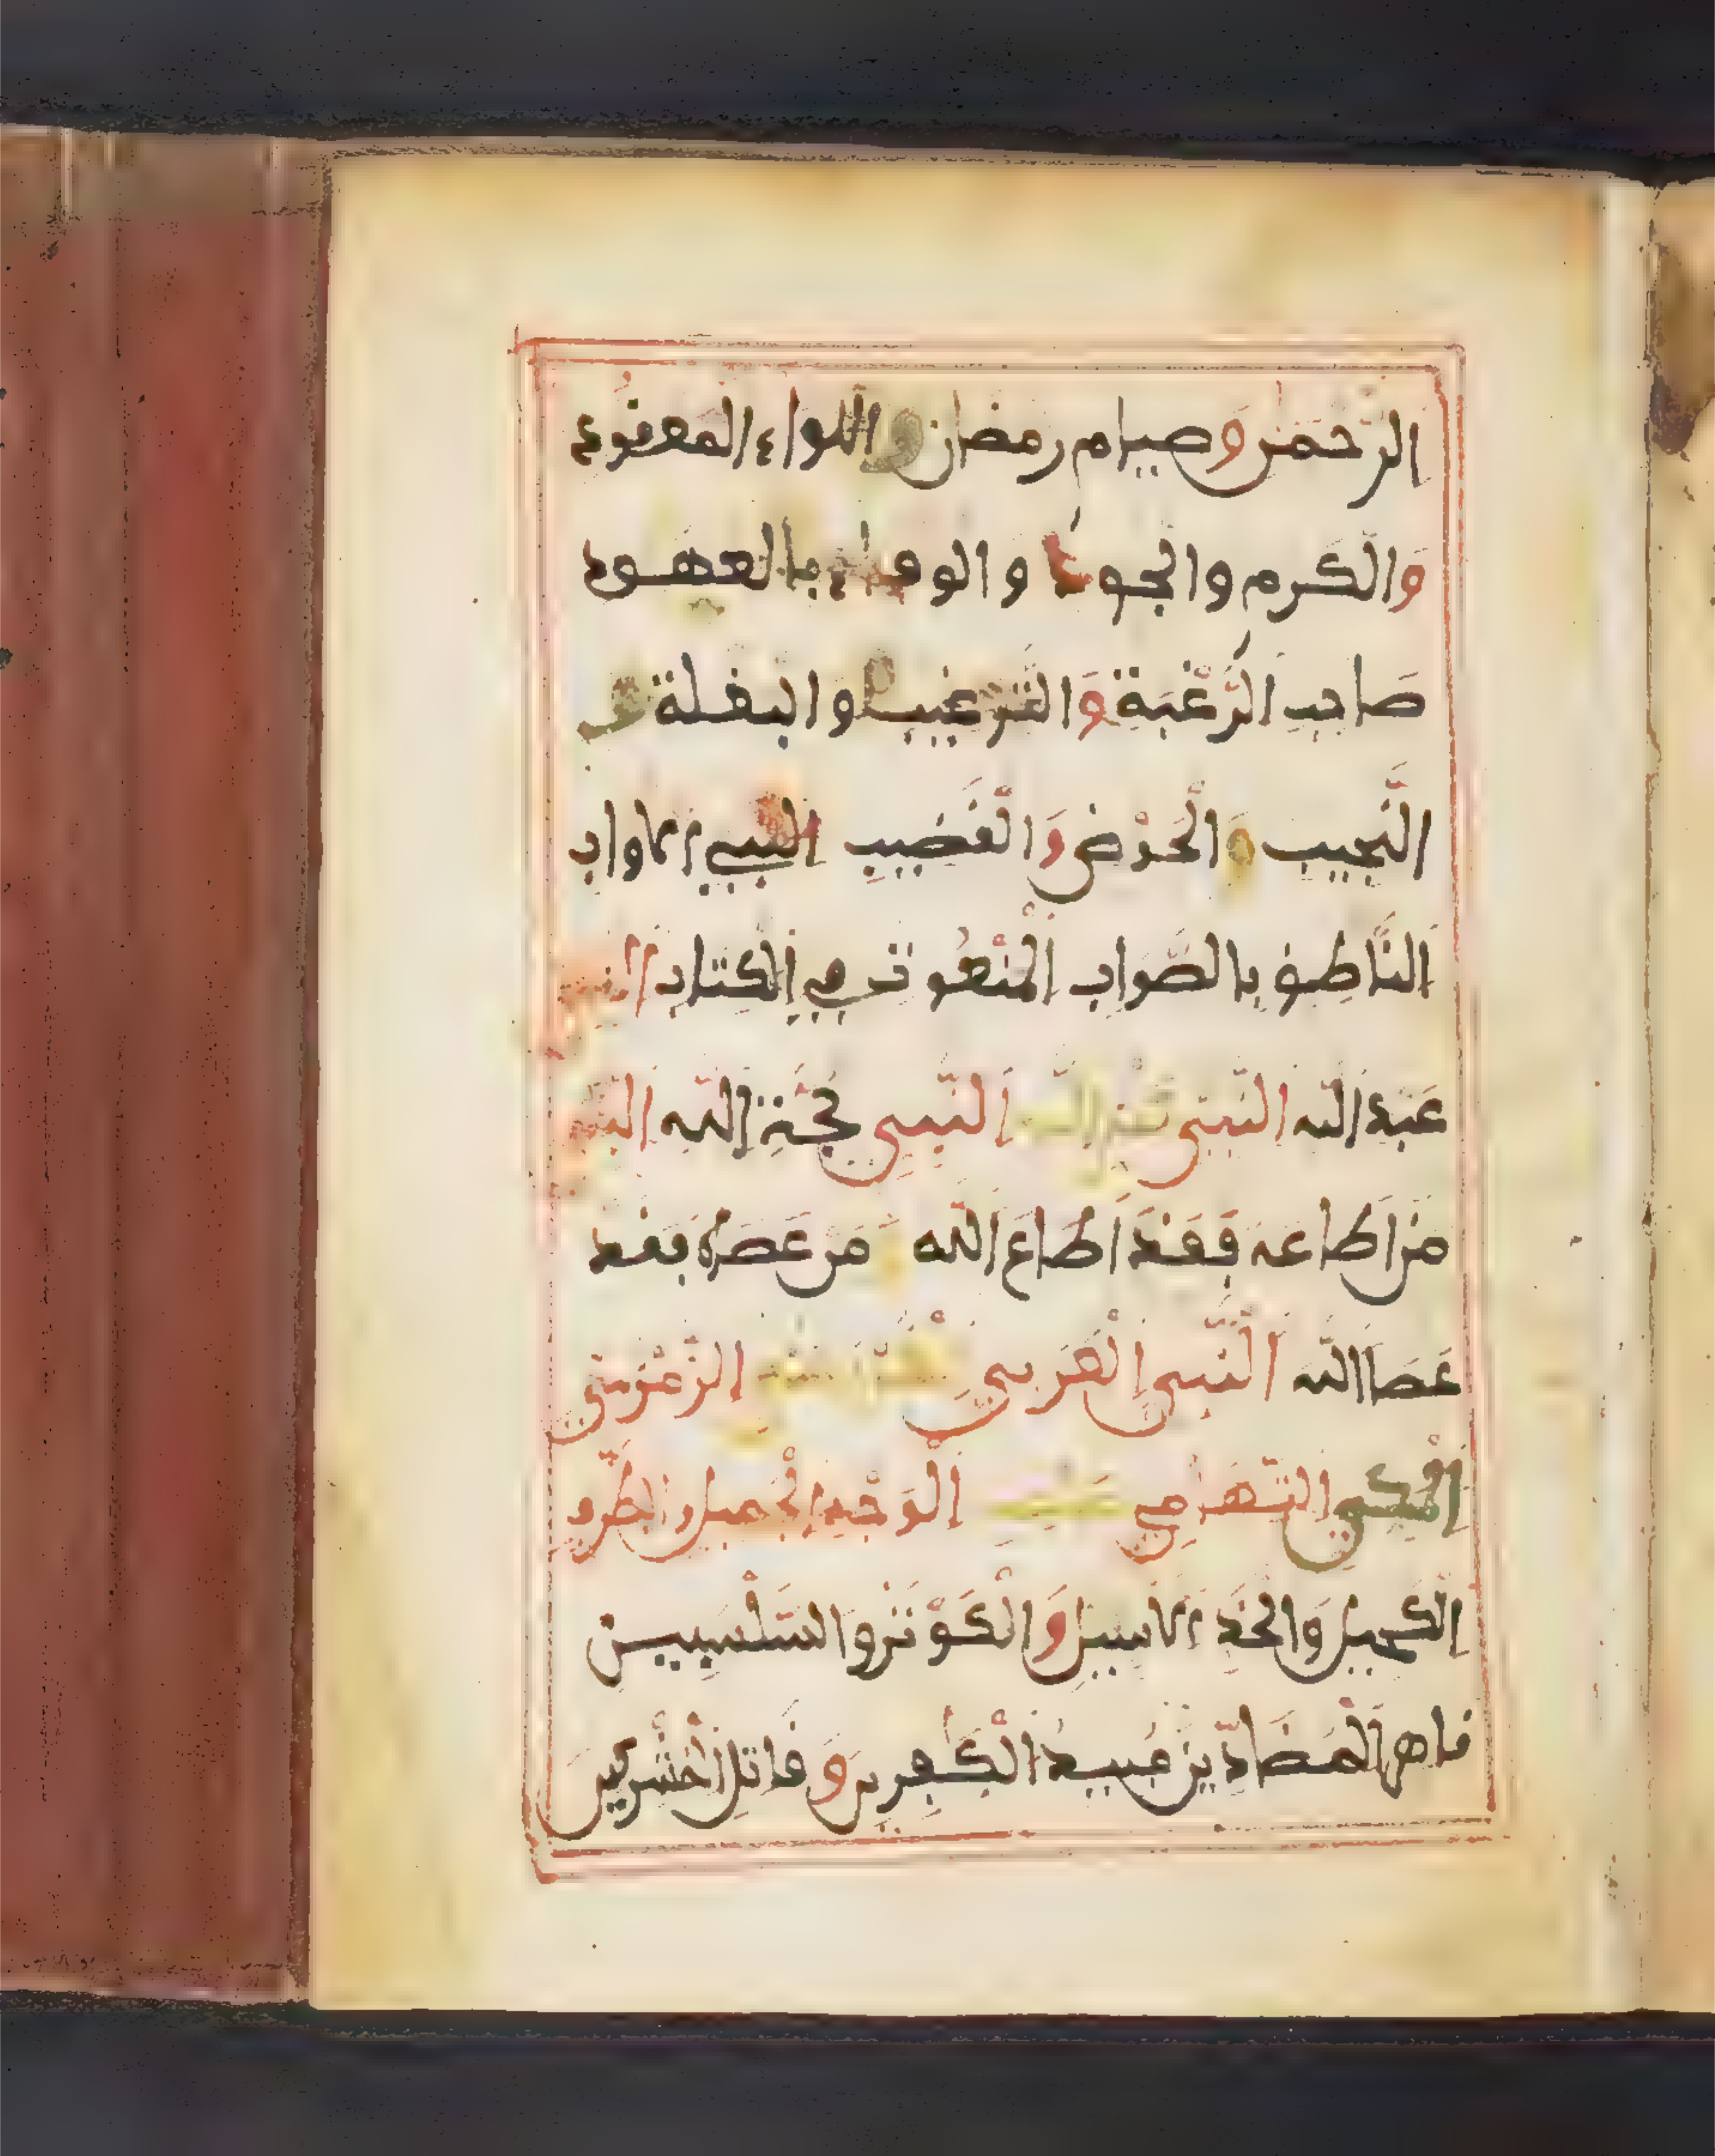 الرّحمن وصيام رمضان واللواء المعقود
والكرم والجود والوفاء بالعهود
صَاحبِ الرَّغْبَةِ وَالتَّرغيب والبغلة
النَّجيب وَالْحَوْضِ وَالْقَضيبِ النبيء الاواب
النَّاطِقِ بالصَّوابِ الْمَنْعُوتِ في الكِتابِ النبي
عَبْدِ اللّه النَّبيّ كَنْزِ اللّه النَّبِيِ حُجَّةِ اللّهِ النبي
مَنْ اَطاعه فَقَدَ اَطَاعَ اللّه وَمَن عَصَاهُ فَقَد
عَصَا اللّه النَّبي الْعَرَبيِ الْقُرَشيِ الزَّمْزَميّ
الْمَكِّيِ التّهَامِي صَاحِب الْوَجْهِ الْجَميل والطَّرْفِ
الكَحيل وَالْخَدِّ الاسيل وَالْكَوْثَر والسَّلْسَبيل
قاهر الْمُضَادّينَ مُبيدُ الْكَافِرين وَقَاتل الْمُشْركين